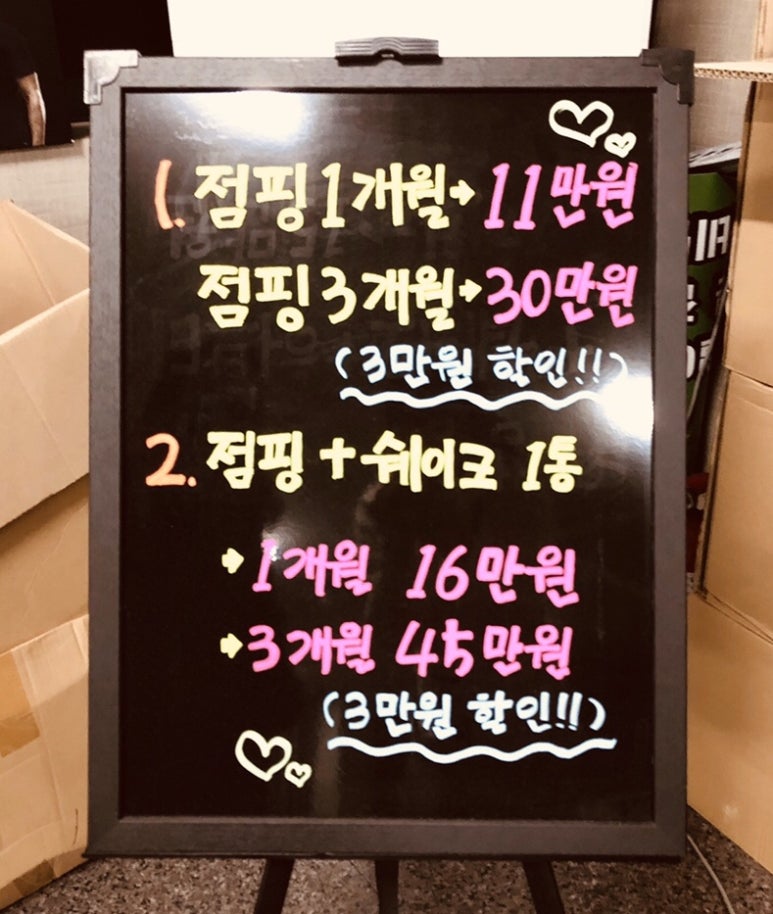 1. 점핑 1개월→11만원
점핑 3개월→30만원
(3만원 할인!!)
2. 점핑 + 쉐이크 1통
→1개월 16만원
→3개월 45만원
(3만원 할인!!)